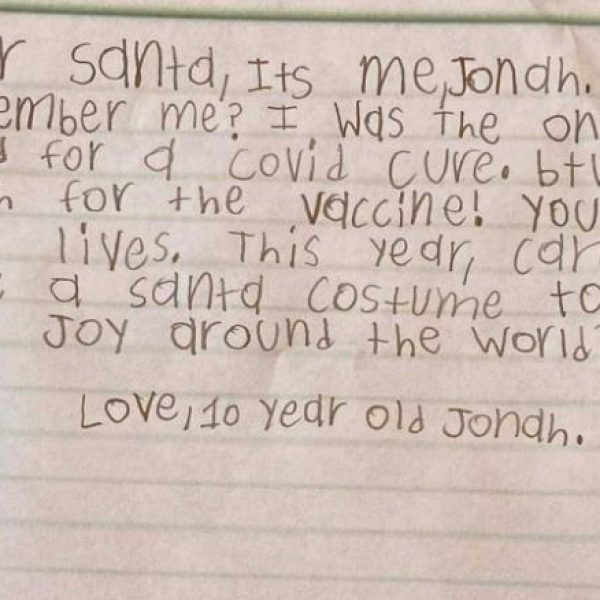 r santa, Its me, Jonah.
ember me? I was the on
for a covid cure. btw
for the vaccine! you
lives. This year, can
a santa costume to
Joy around the world?
Love, 10 year old Jonah.